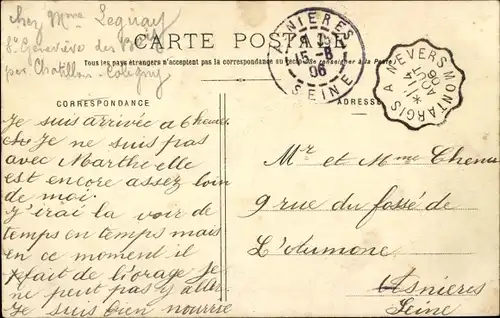 chez Mme Leguay
Ste Geneviève des Bois
par Chatillon-Coligny
CARTE POSTALE
Tous les pays étrangers n'acceptent pas la correspondance au recto. (Se renseigner à la Poste)
ASNIERES
15-8
06
SEINE
MONTARGIS A NEVERS
06
CORRESPONDANCE
ADRESSE
Je suis arrivée a 6 heures
Je ne suis pas
avec Marthe elle
est encore assez loin
de moi.
J'irai la voir de
temps en temps mais
en ce moment il
fait de l'orage Je
ne peut pas y aller
Je suis bien nourrie
Mr et Mme Chenu
9 rue du fossé de
L'Aumone
Asnieres
Seine